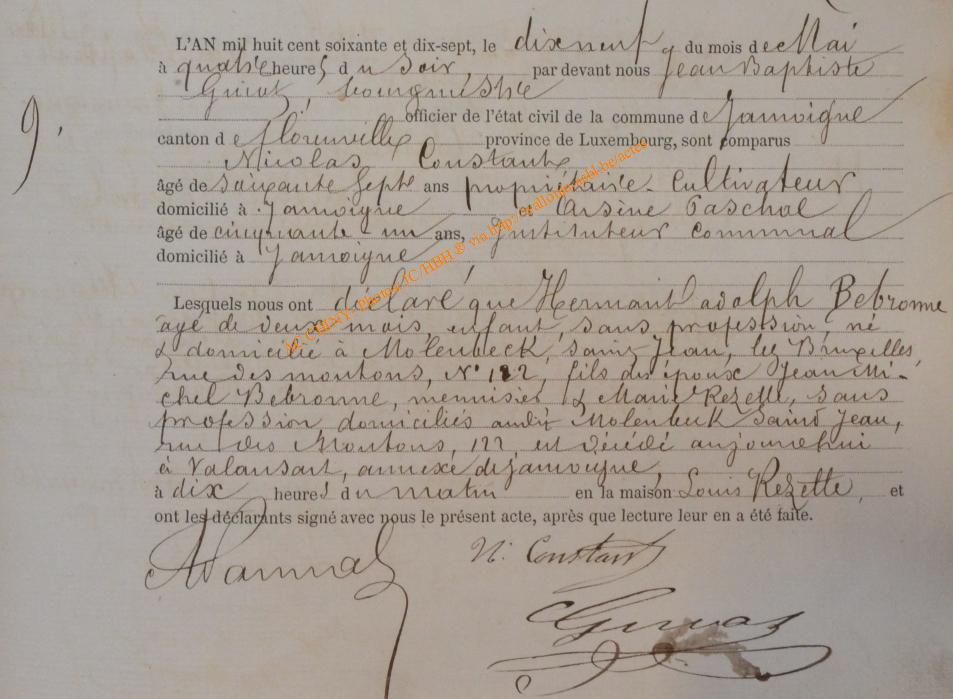 L'AN mil huit cent soixante et dix-sept, le dixneuf du mois de Mai
à quatre heures du Soir, par devant nous Jean Baptiste
bourgmestre
officier de l'état civil de la commune de Jamoigne
9.
canton de florenville province de Luxembourg, sont comparus
Nicolas Constant
âgé de soixante Sept ans propriétaire-Cultivateur
domicilié à Jamoigne et Arsène Paschal
âgé de cinquante-un ans, Instituteur communal
domicilié à Jamoigne
Lesquels nous ont déclaré que Hermant adolph Bebronne
agé de deux mois, enfant, sans profession, né
& domicilié à Molenbeck, Saint Jean, lez Bruxelles,
rue des moutons, N° 122, fils des époux Jean Mi-
chel Bebronne, mennisier & Marie Rezette, sans
profession, domiciliés audit Molenbeck Saint Jean,
rue des Moutons, 122, est décédé aujourdhui
à Valansart, annexe de jamoigne,
à dix heures du matin en la maison Louis Rezette, et
ont les déclarants signé avec nous le présent acte, après que lecture leur en a été faite.
N. Constant